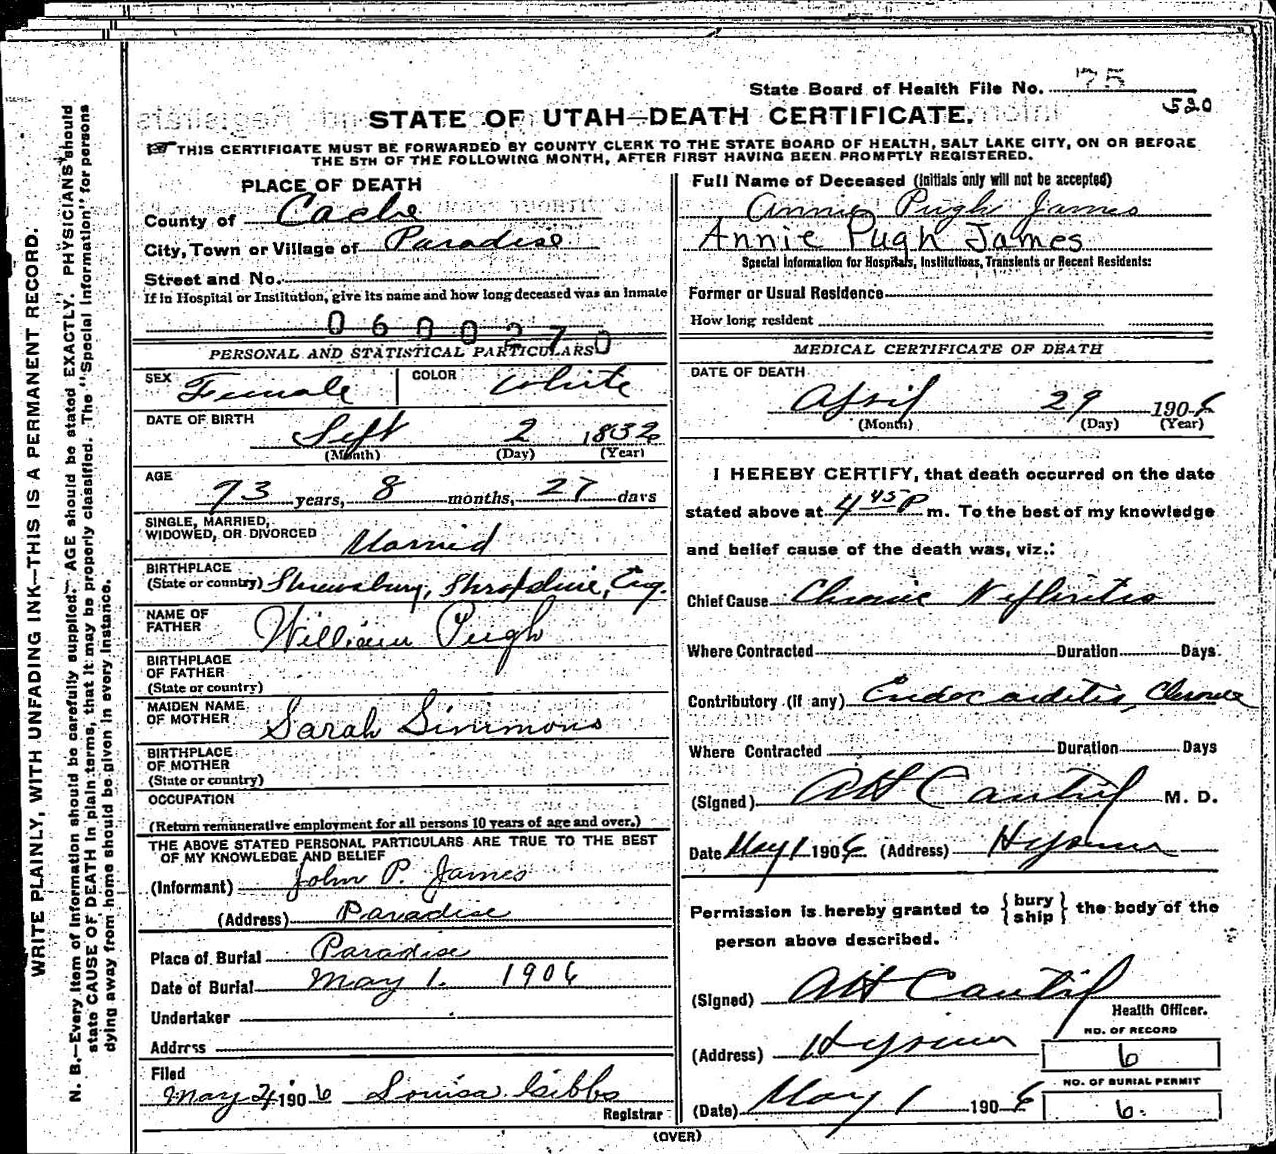 State Board of Health File No. 75
520
STATE OF UTAH—DEATH CERTIFICATE.
THIS CERTIFICATE MUST BE FORWARDED BY COUNTY CLERK TO THE STATE BOARD OF HEALTH, SALT LAKE CITY, ON OR BEFORE
THE 5TH OF THE FOLLOWING MONTH, AFTER FIRST HAVING BEEN PROMPTLY REGISTERED.
PLACE OF DEATH
County of Cache
City, Town or Village of Paradise
Street and No.
If in Hospital or Institution, give its name and how long deceased was an inmate
0600270
PERSONAL AND STATISTICAL PARTICULARS
SEX Female COLOR White
DATE OF BIRTH
Sept 2 1832
(Month) (Day) (Year)
AGE
73 years, 8 months, 27 days
SINGLE, MARRIED,
WIDOWED, OR DIVORCED Married
BIRTHPLACE
(State or country) Shrewsbury, Shropshire, Eng.
NAME OF
FATHER William Pugh
BIRTHPLACE
OF FATHER
(State or country)
MAIDEN NAME
OF MOTHER Sarah Simmons
BIRTHPLACE
OF MOTHER
(State or country)
OCCUPATION
(Return remunerative employment for all persons 10 years of age and over.)
THE ABOVE STATED PERSONAL PARTICULARS ARE TRUE TO THE BEST
OF MY KNOWLEDGE AND BELIEF
(Informant) John P. James
(Address) Paradise
Place of Burial Paradise
Date of Burial May 1. 1906
Undertaker
Address
Filed
May 4, 1906 Louisa Gibbs
Registrar
Full Name of Deceased (Initials only will not be accepted)
Annie Pugh James
Annie Pugh James
Special Information for Hospitals, Institutions, Transients or Recent Residents:
Former or Usual Residence
How long resident
MEDICAL CERTIFICATE OF DEATH
DATE OF DEATH
April 29 1906
(Month) (Day) (Year)
I HEREBY CERTIFY, that death occurred on the date
stated above at 4 45 P m. To the best of my knowledge
and belief cause of the death was, viz.:
Chief Cause Chronic Nephritis
Where Contracted Duration Days.
Contributory (if any) Endocarditis, Chronic
Where Contracted Duration Days
(Signed) M. D.
Date May 1 1906 (Address) Hyrum
Permission is hereby granted to {bury ship} the body of the
person above described.
(Signed)
Health Officer.
(Address) Hyrum
NO. OF RECORD
6
(Date) May 1 1906
NO. OF BURIAL PERMIT
6.
(OVER)
WRITE PLAINLY, WITH UNFADING INK—THIS IS A PERMANENT RECORD.
N. B.—Every item of information should be carefully supplied. AGE should be stated EXACTLY. PHYSICIANS should
state CAUSE OF DEATH in plain terms, that it may be properly classified. The "Special Information" for persons
dying away from home should be given in every instance.